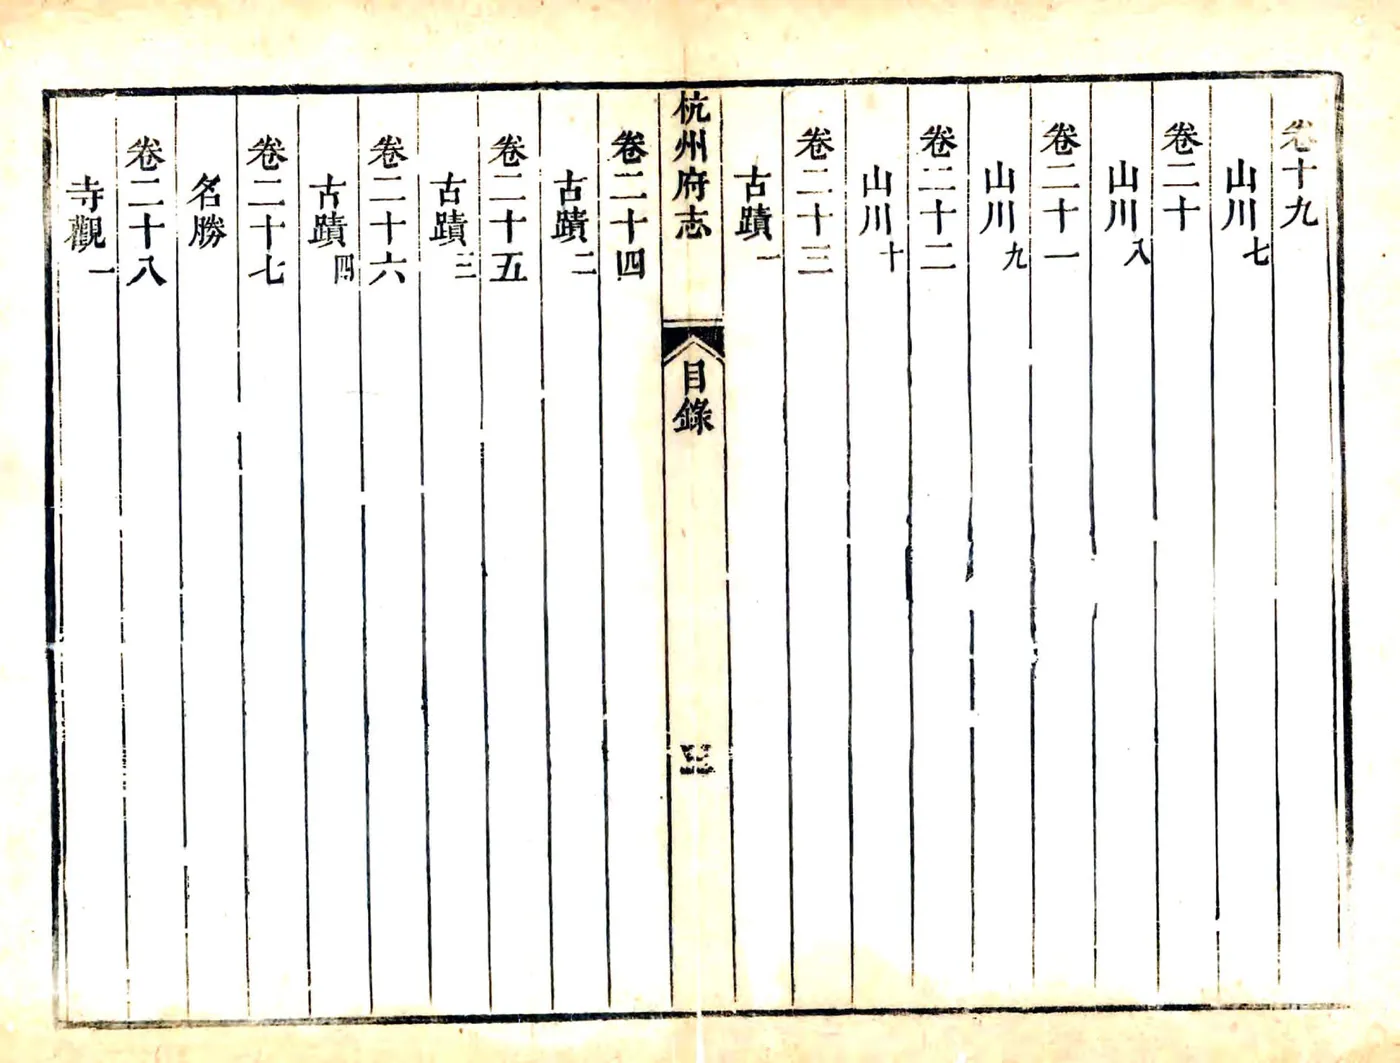 卷十九
山川七
卷二十
山川八
卷二十一
山川九
卷二十二
山川十
卷二十三
古蹟一
杭州府志
目錄
卷二十四
古蹟二
卷二十五
古蹟三
卷二十六
古蹟四
卷二十七
名勝
卷二十八
寺觀一